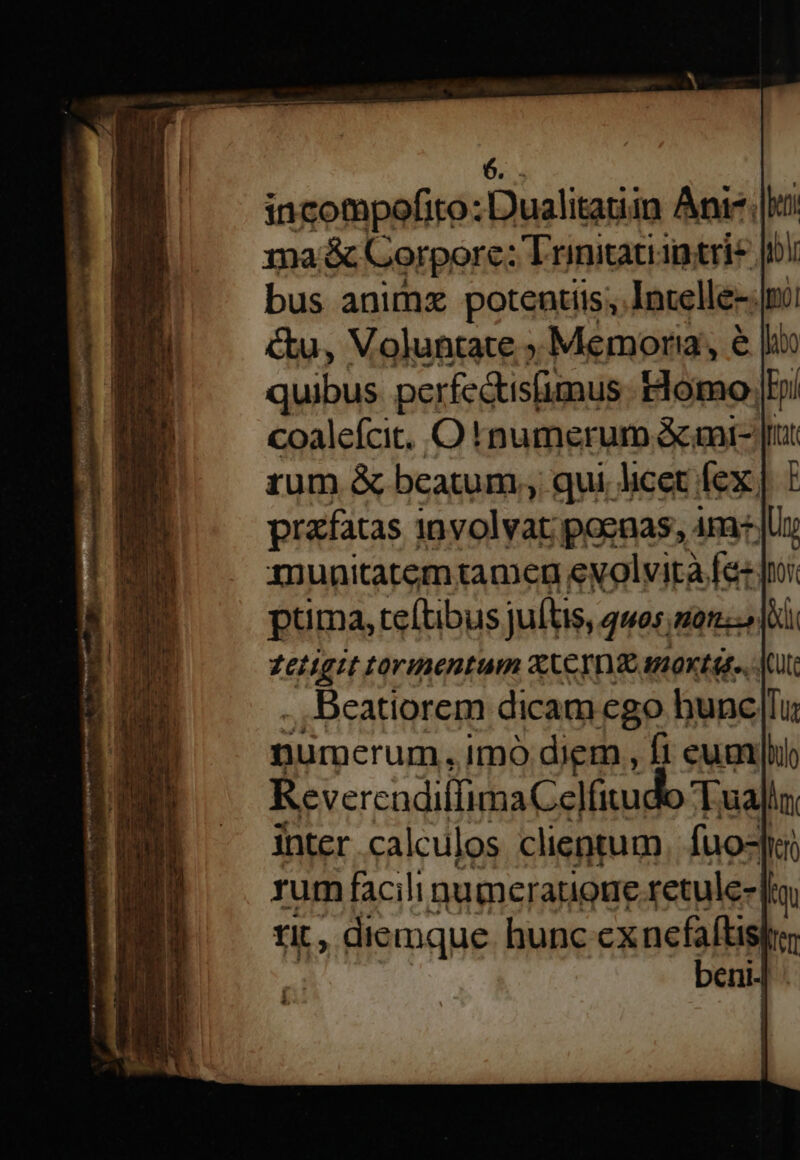 6.
incompoſito: Dualitati in Ani-
ma & Corpore: Trinitati in tri-
bus animæ potentiis, Intelle-
ctu, Voluntate, Memoria, è
quibus perfectiſſimus Homo
coaleſcit. O! numerum & mi-
rum & beatum, qui licet ſex
præfatas involvat pœnas, im-
munitatem tamen evolvit à ſe-
ptima, teſtibus juſtis, quos non
tetigit tormentum æternæ mortis.
Beatiorem dicam ego hunc
numerum, imò diem, ſi eum
Reverendiſſima Celſitudo Tua
inter calculos clientum ſuo-
rum facili numeratione retule-
rit, diemque hunc ex nefaſtis
beni-